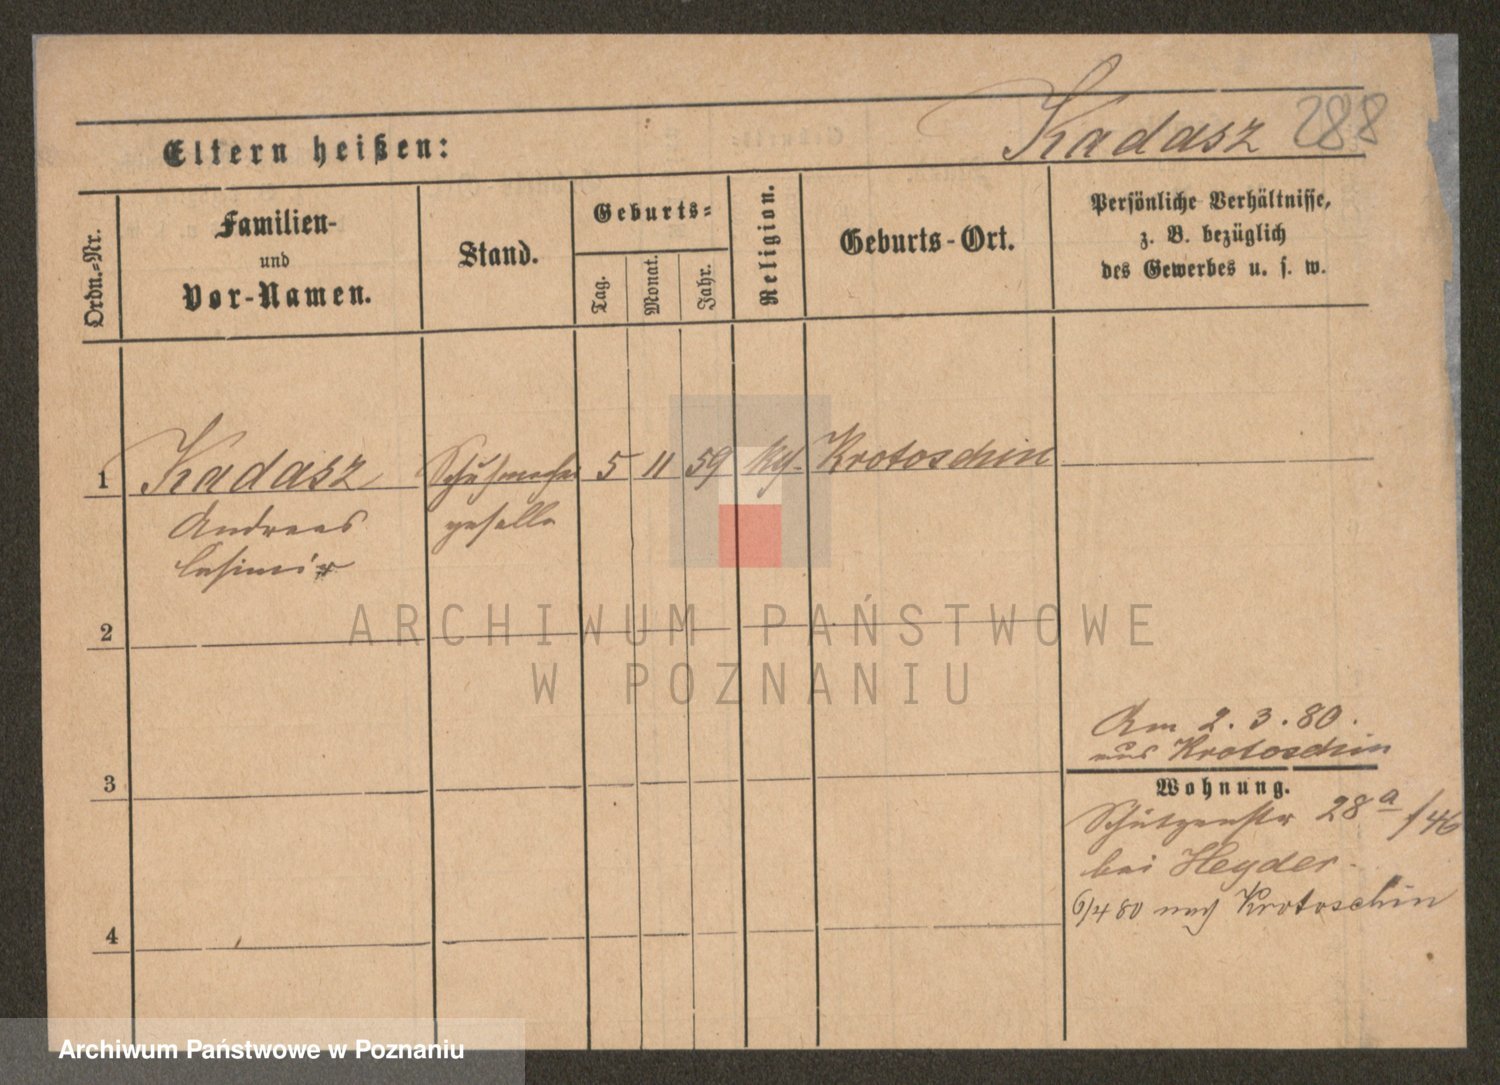 Kadasz 288
Eltern heißen:
Ordn.-Nr.
Familien-
und
Vor-Namen.
Stand.
Geburts-
Tag.
Monat.
Jahr.
Religion.
Geburts-Ort.
Persönliche Verhältnisse,
z. B. bezüglich
des Gewerbes u. s. w.
1 Kadasz Schuhmacher 5 11 59 kth. Krotoschin
Andreas geselle
Casimir
2
ARCHIWUM PAŃSTWOWE
W POZNANIU
Am 2.3.80.
aus Krotoschin
3
Wohnung.
Schützenstr 28a /46
bei Heyder.
6/4 80 nach Krotoschin
4
Archiwum Państwowe w Poznaniu